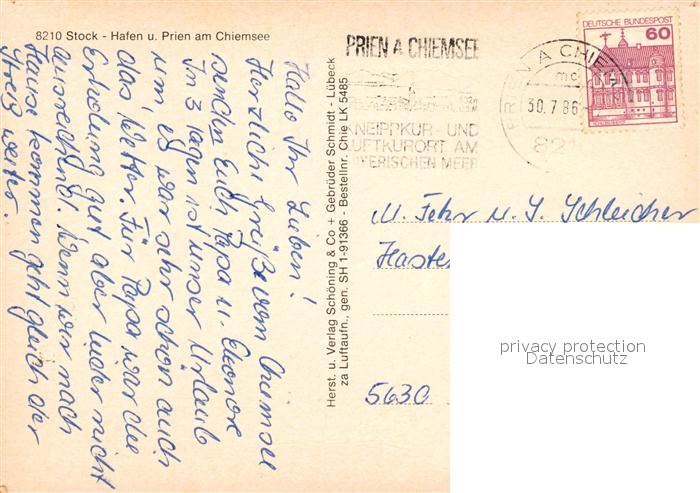 8210 Stock - Hafen u. Prien am Chiemsee
Hallo Ihr Lieben!
Herzliche Grüße vom Chiemsee
senden Euch Papa u.
In 3 Tagen ist unser Urlaub
um es war sehr schön auch
das Wetter. Für Papa war die
Erholung gut aber leider nicht
ausreichend. Wenn wir nach
Hause kommen geht gleich der
Streß weiter.
Herst. u. Verlag Schöning & Co + Gebrüder Schmidt - Lübeck
za Luftaufn., gen. SH 1-91366 - Bestellnr. Chie LK 5485
PRIEN A CHIEMSEE
KNEIPPKUR- UND
LUFTKURORT AM
BAYERISCHEN MEER
PRIEN A CHIEM
mc
30.7.86
821
DEUTSCHE BUNDESPOST
60
M. Fehr u. J. Schleicher
Hasten
5630
privacy protection
Datenschutz